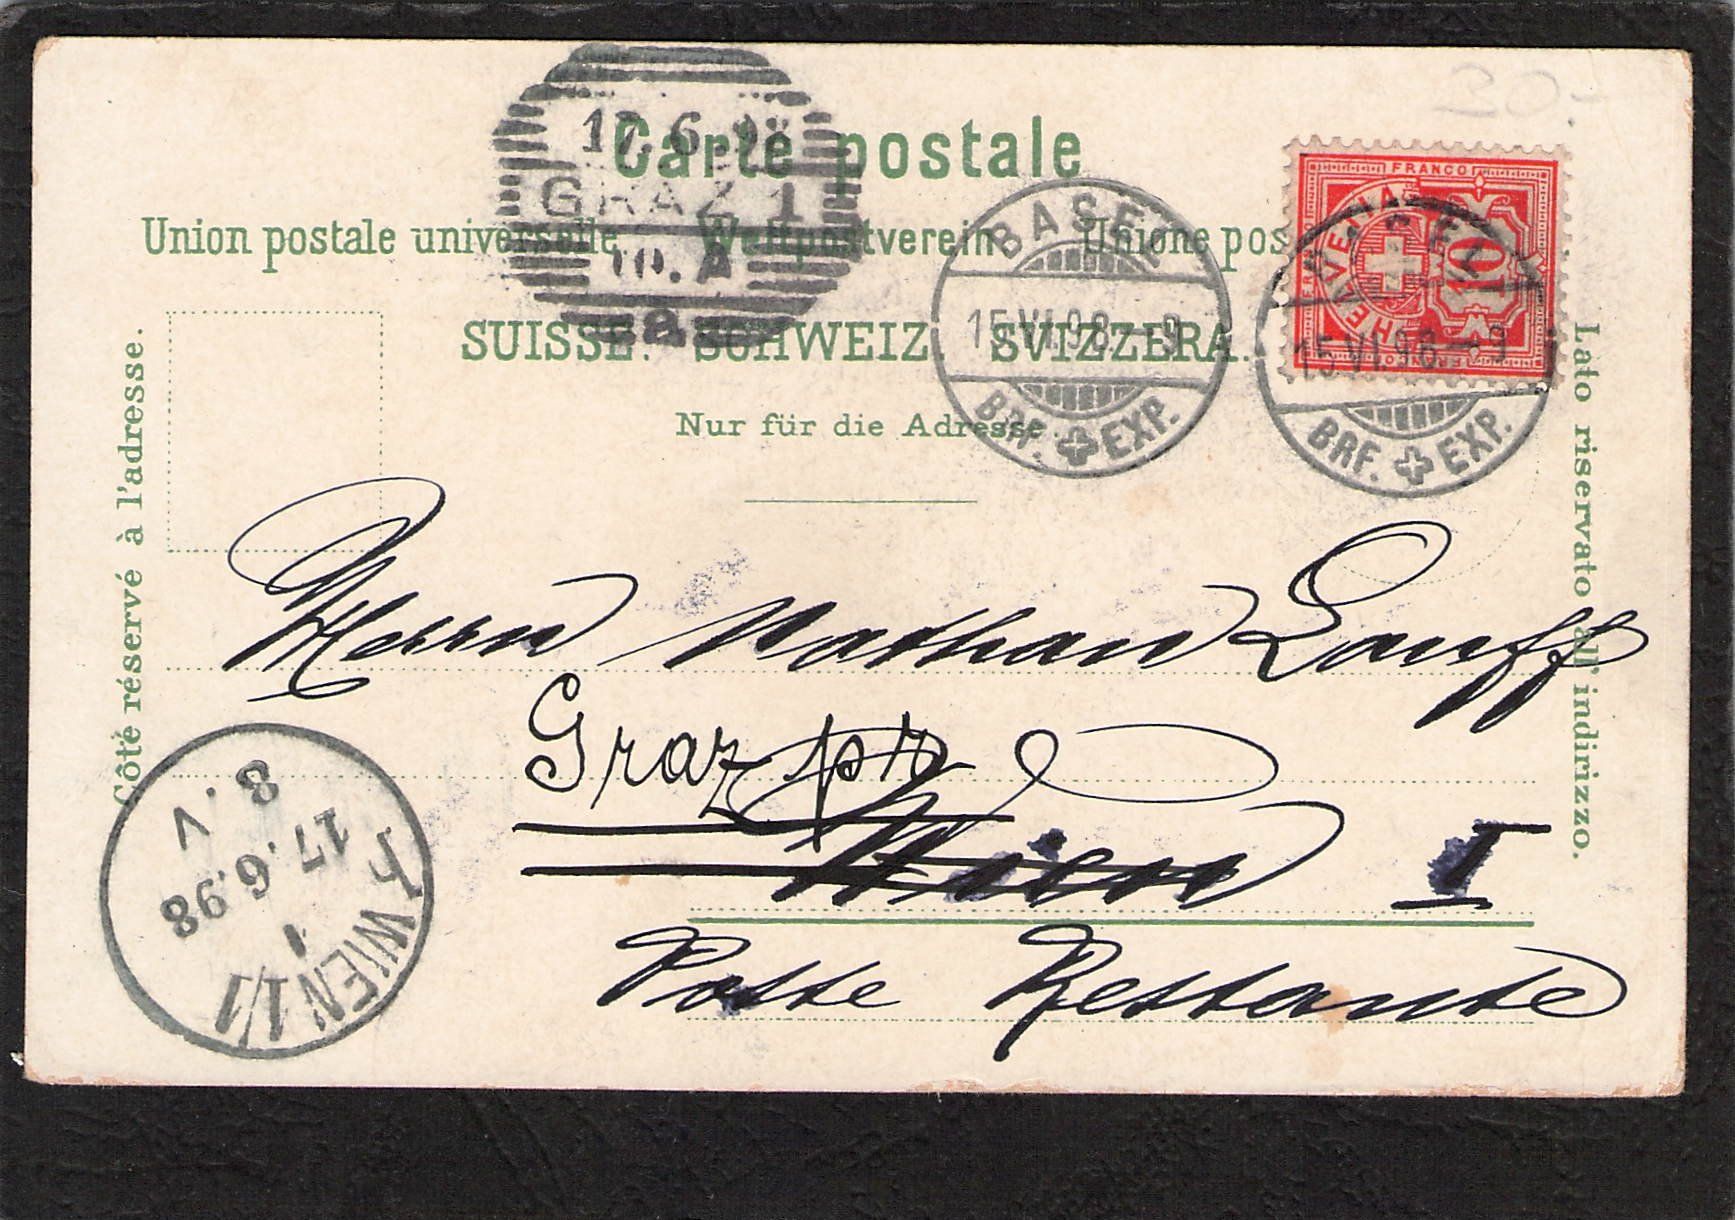 20.-
Carte postale
Union postale universelle Weltpostverein Unione pos
SUISSE. SCHWEIZ. SVIZZERA.
Nur für die Adresse.
Côté réservé à l'adresse.
Lato riservato all' indirizzo.
17.6.98
GRAZ 1
10. A
a
BASEL
15.VI.98.-9
BRF. EXP.
FRANCO
HELVETIA
10
BASEL
15.VI.98.-9
BRF. EXP.
Herrn Nathan Lauff
Graz p r
Wien I
Poste Restante
WIEN 1/1
17.6.98
8.V
1